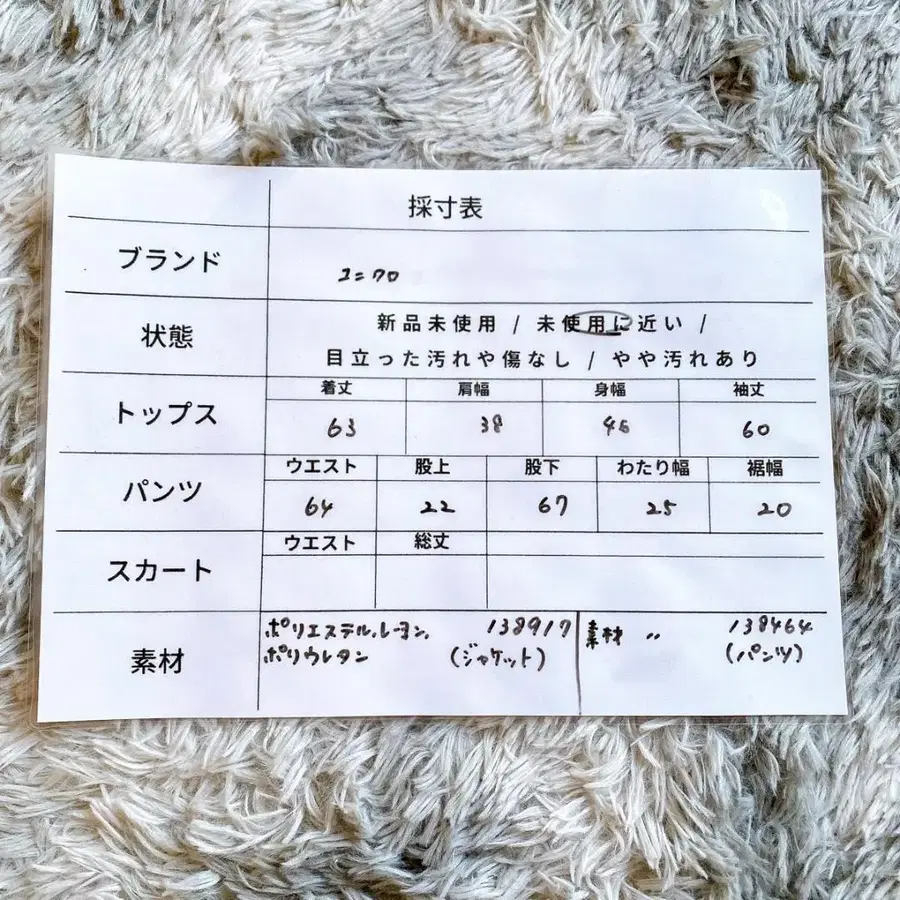 採寸表
ブランド
ユニクロ
状態
新品未使用 / 未使用に近い /
目立った汚れや傷なし / やや汚れあり
トップス
着丈 肩幅 身幅 袖丈
63 38 46 60
パンツ
ウエスト 股上 股下 わたり幅 裾幅
64 22 67 25 20
スカート
ウエスト 総丈
素材
ポリエステル、レーヨン、 138917
ポリウレタン (ジャケット)
素材 〃 138464
(パンツ)